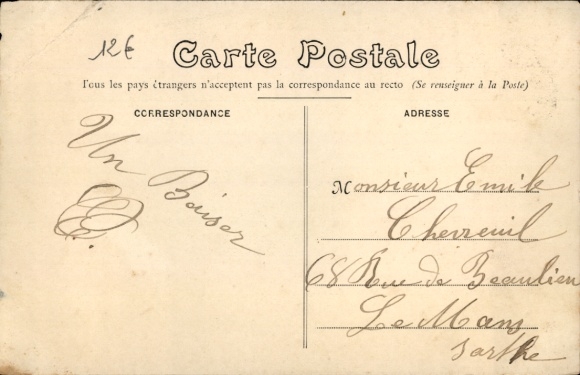 12€
Carte Postale
Tous les pays étrangers n'acceptent pas la correspondance au recto (Se renseigner à la Poste)
CORRESPONDANCE
Un Baiser
ADRESSE
Monsieur Emile
Chevreuil
68 Rue de Beaulieu
Le Mans
Sarthe